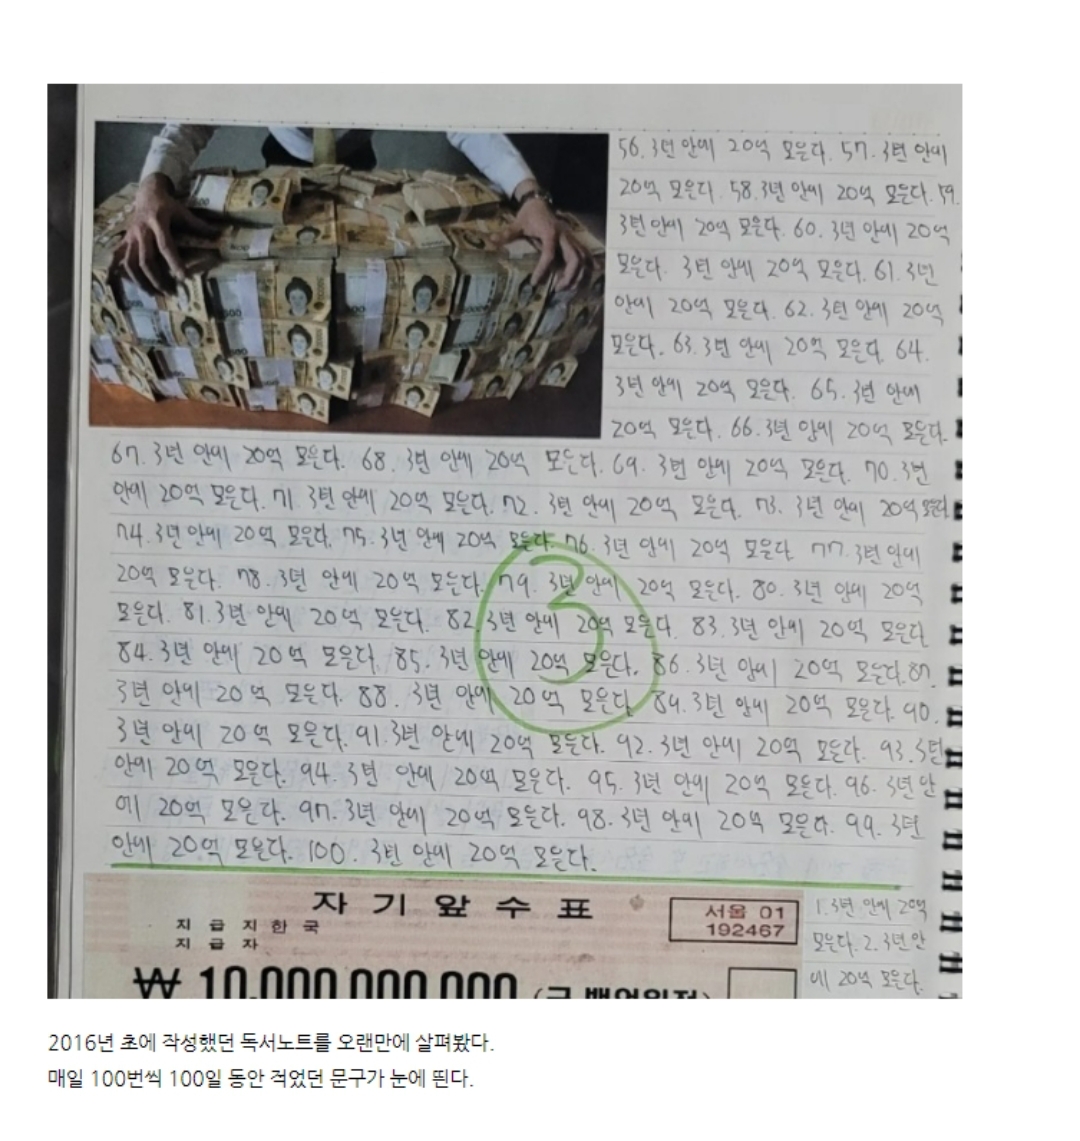 56. 3년 안에 20억 모은다. 57. 3년 안에
20억 모은다. 58. 3년 안에 20억 모은다. 59.
3년 안에 20억 모은다. 60. 3년 안에 20억
모은다. 3년 안에 20억 모은다. 61. 3년
안에 20억 모은다. 62. 3년 안에 20억
모은다. 63. 3년 안에 20억 모은다. 64.
3년 안에 20억 모은다. 65. 3년 안에
20억 모은다. 66. 3년 안에 20억 모은다.
67. 3년 안에 20억 모은다. 68. 3년 안에 20억 모은다. 69. 3년 안에 20억 모은다. 70. 3년
안에 20억 모은다. 71. 3년 안에 20억 모은다. 72. 3년 안에 20억 모은다. 73. 3년 안에 20억 모은다
74. 3년 안에 20억 모은다. 75. 3년 안에 20억 모은다. 76. 3년 안에 20억 모은다 77. 3년 안에
20억 모은다. 78. 3년 안에 20억 모은다. 79. 3년 안에 20억 모은다. 80. 3년 안에 20억
모은다. 81. 3년 안에 20억 모은다. 82. 3년 안에 20억 모은다. 83. 3년 안에 20억 모은다
84. 3년 안에 20억 모은다. 85. 3년 안에 20억 모은다. 86. 3년 안에 20억 모은다. 87.
3년 안에 20억 모은다. 88. 3년 안에 20억 모은다. 89. 3년 안에 20억 모은다. 90.
3년 안에 20억 모은다. 91. 3년 안에 20억 모은다. 92. 3년 안에 20억 모은다. 93. 3년
안에 20억 모은다. 94. 3년 안에 20억 모은다. 95. 3년 안에 20억 모은다. 96. 3년 안
에 20억 모은다. 97. 3년 안에 20억 모은다. 98. 3년 안에 20억 모은다. 99. 3년
안에 20억 모은다. 100. 3년 안에 20억 모은다.
3
자기앞수표
지급지 한국
지급자
서울 01
192467
₩ 10,000,000,000
1. 3년 안에 20억
모은다. 2. 3년 안
에 20억 모은다.
2016년 초에 작성했던 독서노트를 오랜만에 살펴봤다.
매일 100번씩 100일 동안 적었던 문구가 눈에 띈다.